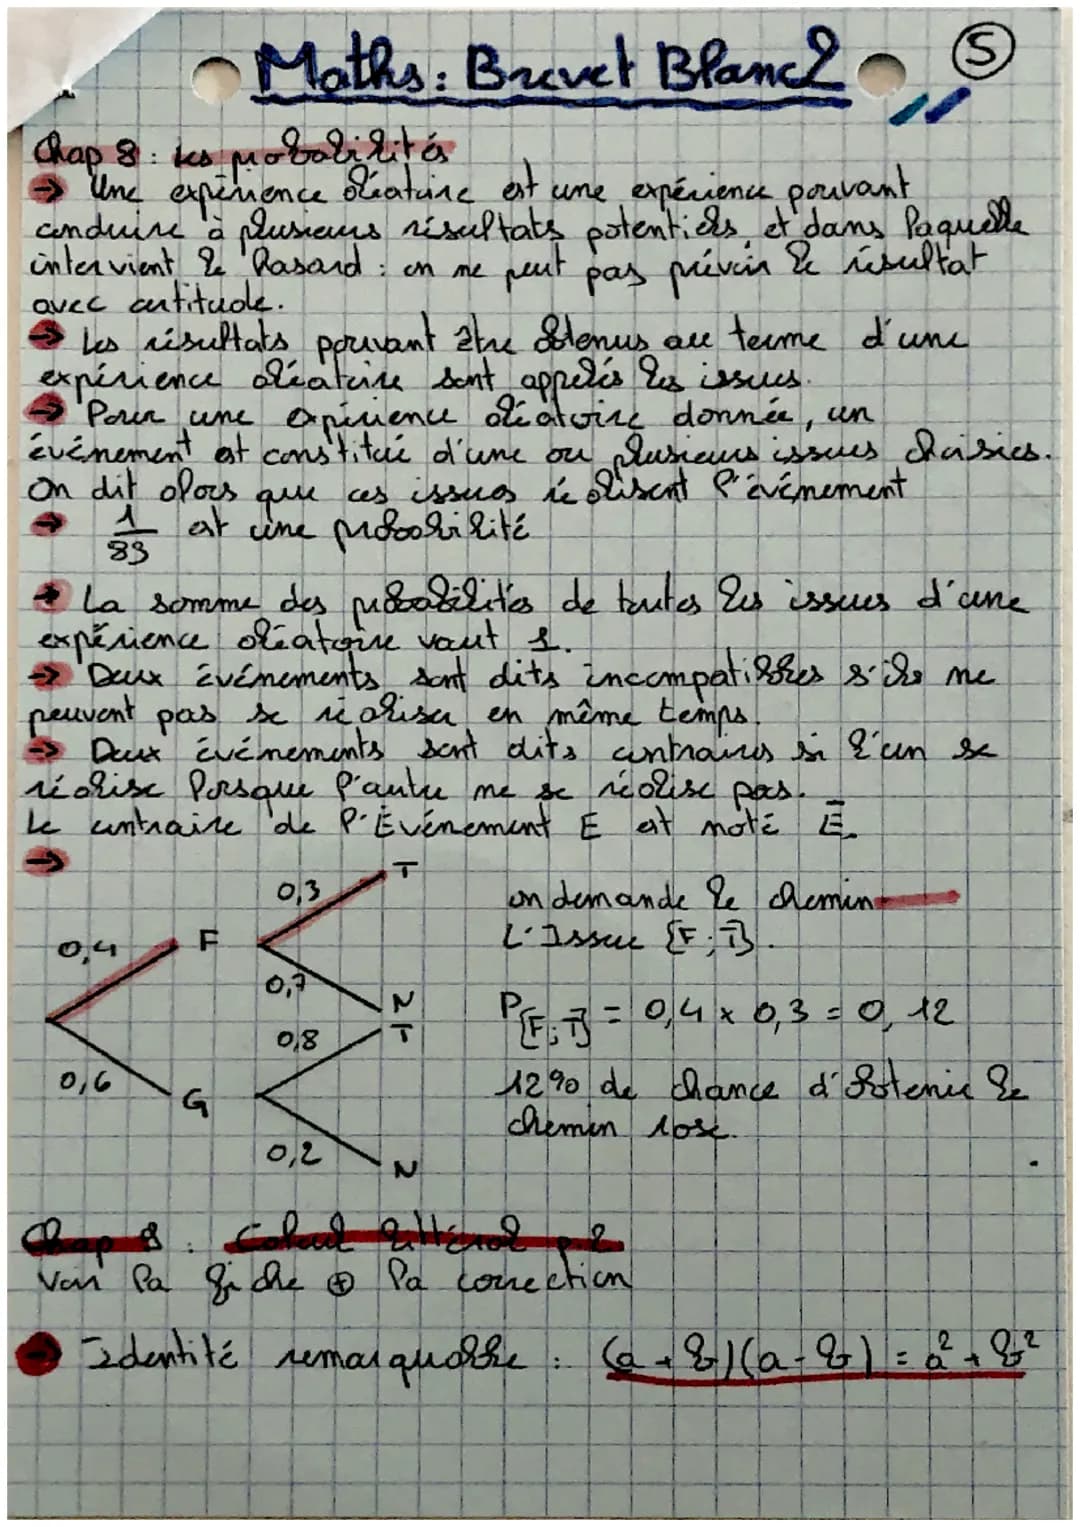 Maths : Brevet Blanc 2
5
Chap 8 : Les probabilités
→ Une expérience aléatoire est une expérience pouvant
conduire à plusieurs résultats potentiels, et dans laquelle
intervient le hasard : on ne peut pas prévoir le résultat
avec certitude.
→ Les résultats pouvant être obtenus au terme d'une
expérience aléatoire sont appelés les issues.
→ Pour une expérience aléatoire donnée, un
événement est constitué d'une ou plusieurs issues choisies.
On dit alors que ces issues réalisent l'événement
→ 1/83 est une probabilité
→ La somme des probabilités de toutes les issues d'une
expérience aléatoire vaut 1.
→ Deux événements sont dits incompatibles s'ils ne
peuvent pas se réaliser en même temps.
→ Deux événements sont dits contraires si l'un se
réalise lorsque l'autre ne se réalise pas.
Le contraire de l'Événement E est noté Ē.
→
0,4
F
0,3
T
0,7
N
0,6
G
0,8
T
0,2
N
on demande le chemin
L'Issue {F ; T}.
P{F ; T} = 0,4 x 0,3 = 0,12
12% de chance d'obtenir le
chemin rose.
Chap 9 : Calcul littéral p.2
Voir la fiche ⊕ la correction
→ Identité remarquable : (a + b)(a - b) = a² + b²